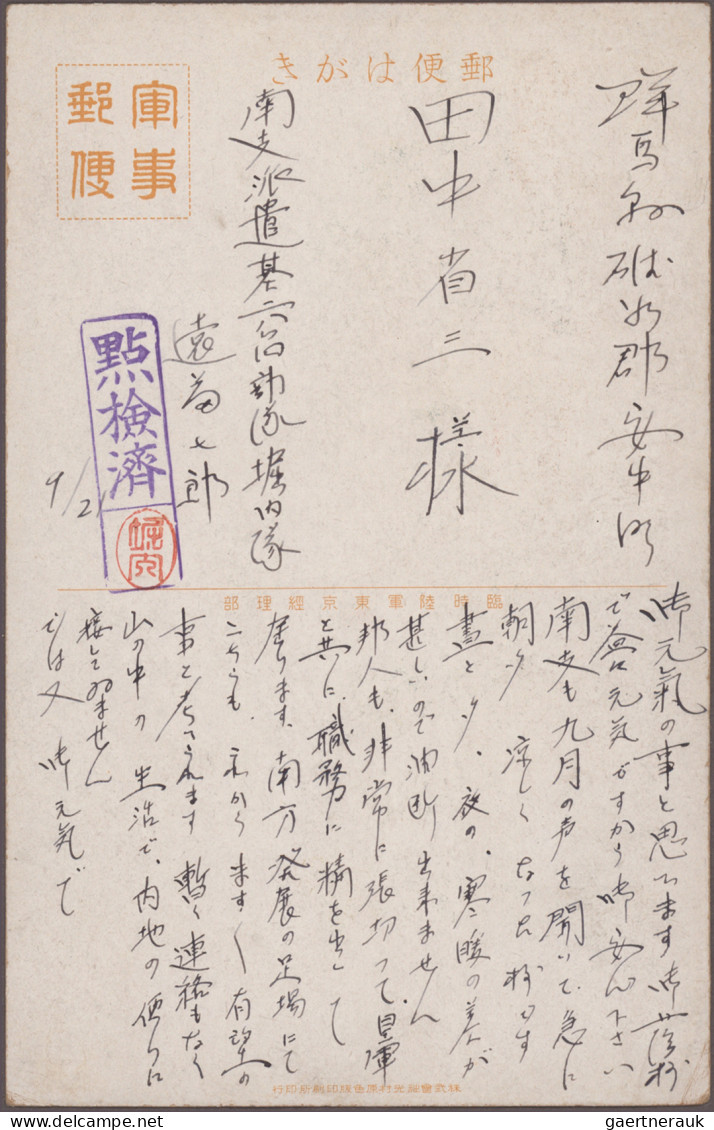 郵便はがき
軍事
郵便
群馬縣碓氷郡安中町
田中省三様
南支派遣基六 部隊堀内隊
遠 七郎
點檢濟
堀内
9/21
臨時陸軍東京經理部
御元氣の事と思ひます 御蔭様
で 元気ですから御安心下さい
南支も九月の声を聞いて、急に
朝夕 涼しくなつた様です
晝と夕、夜の、寒暖の差が
甚しいので油断出来ません
邦人も、非常に張切つて、皇軍
と共に、職務に精を出して
居ります、南方発展の足場にて
こちらも、これからますく有望の
事と考へられます 暫く連絡もなく
山の中の生活で、内地の便りに
接して ません
では又 御元気で
株式會社光村原色版印刷所印行
gaertnerauk @ delcampe.net